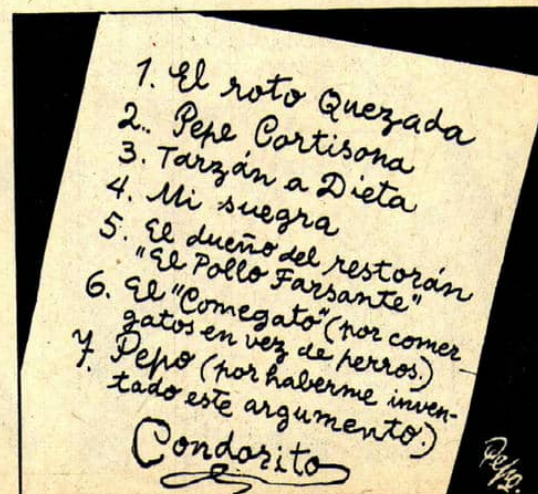 1. El roto Quezada
2. Pepe Cortisona
3. Tarzán a Dieta
4. Mi suegra
5. El dueño del restorán
"El Pollo Farsante"
6. El "Comegato" (por comer
gatos en vez de perros.)
7. Pepo (por haberme inven-
tado este argumento.)
Condorito
Pepo.